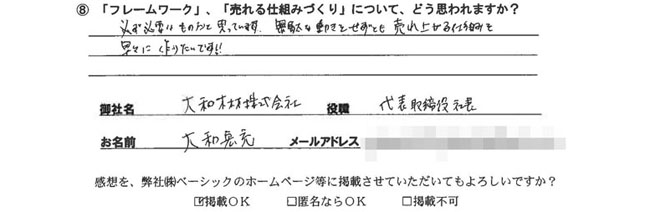 ⑧ 「フレームワーク」、「売れる仕組みづくり」について、どう思われますか？
必ず必要なものだと思っています。無駄な動きをせずとも売れ上がる仕組みを
早々に作りたいです!!
御社名 大和木材株式会社 役職 代表取締役社長
お名前 大和 メールアドレス
感想を、弊社㈱ベーシックのホームページ等に掲載させていただいてもよろしいですか？
☑掲載OK □匿名ならOK □掲載不可